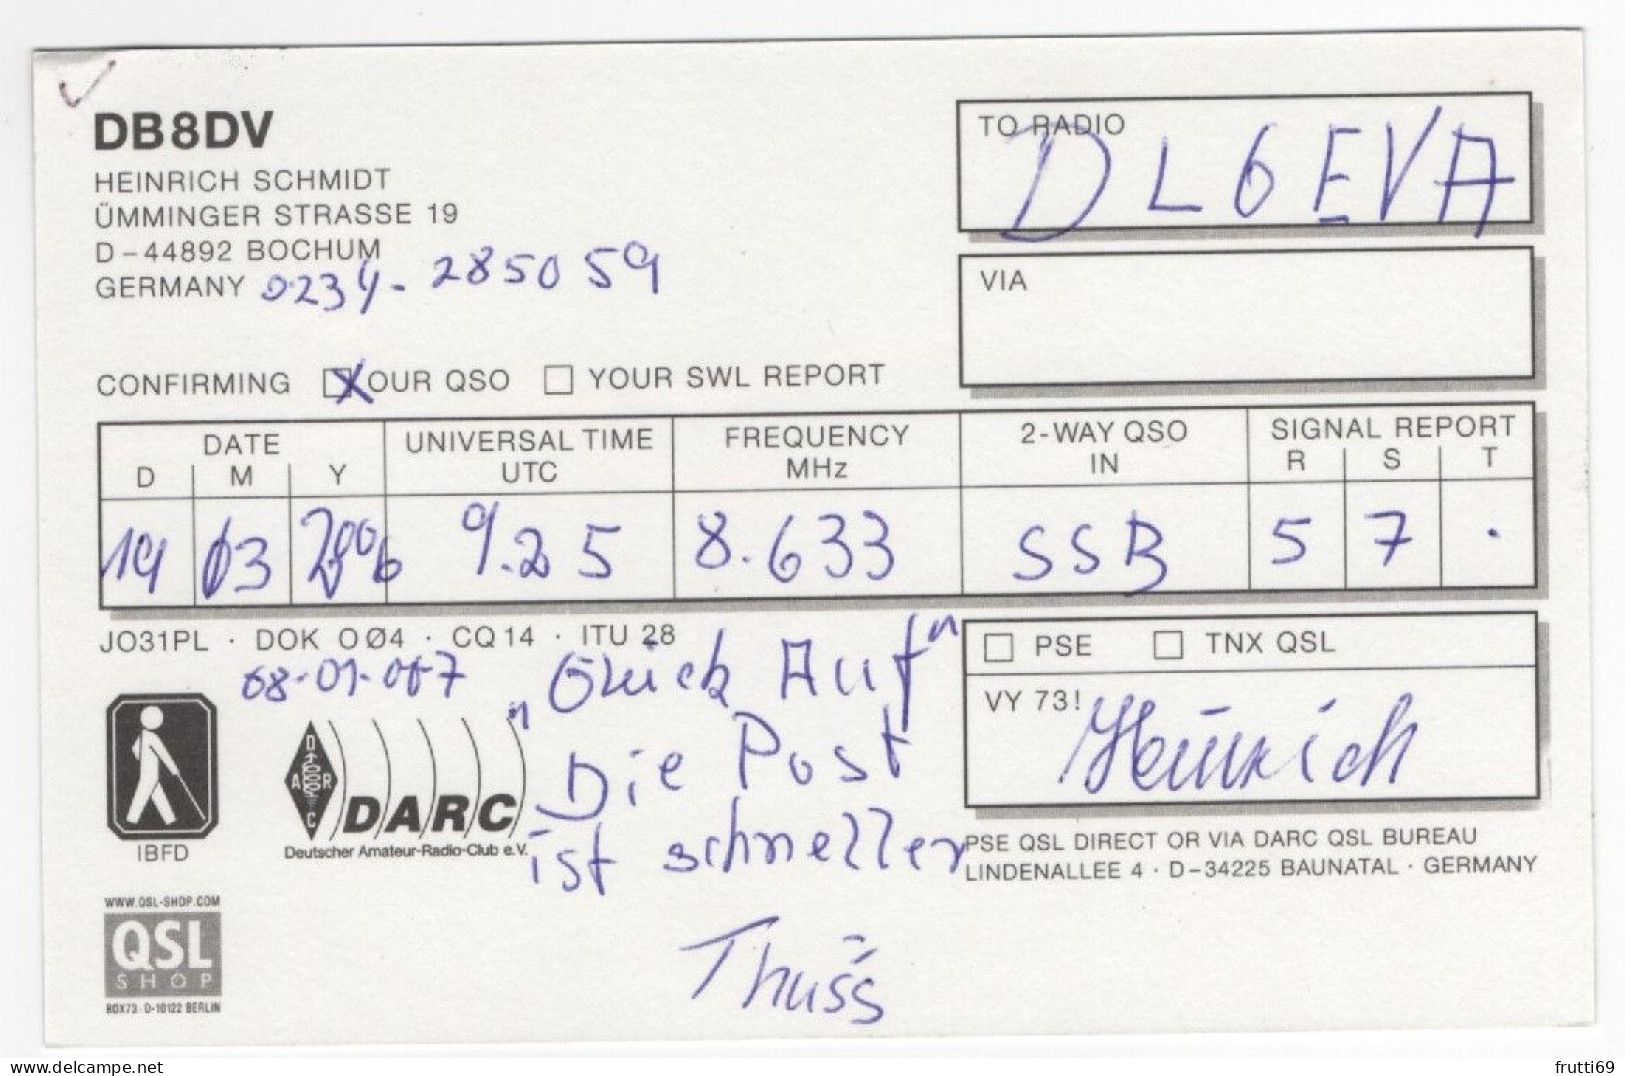 DB8DV
HEINRICH SCHMIDT
ÜMMINGER STRASSE 19
D-44892 BOCHUM
GERMANY 0234-285059
TO RADIO
DL6EVA
VIA
CONFIRMING OUR QSO YOUR SWL REPORT
DATE UNIVERSAL TIME FREQUENCY 2-WAY QSO SIGNAL REPORT
D M Y UTC MHz IN R S T
19 03 2006 9.25 8.633 SSB 5 7 .
JO31PL · DOK OØ4 · CQ14 · ITU 28
08-01-007
"Glück Auf"
Die Post
ist schneller
Thüss
PSE TNX QSL
VY 73!
Heinrich
IBFD
DARC
DARC
Deutscher Amateur-Radio-Club e.V.
PSE QSL DIRECT OR VIA DARC QSL BUREAU
LINDENALLEE 4 · D-34225 BAUNATAL · GERMANY
WWW.QSL-SHOP.COM
QSL
SHOP
BOX73 D-10122 BERLIN
www.delcampe.net
frutti69